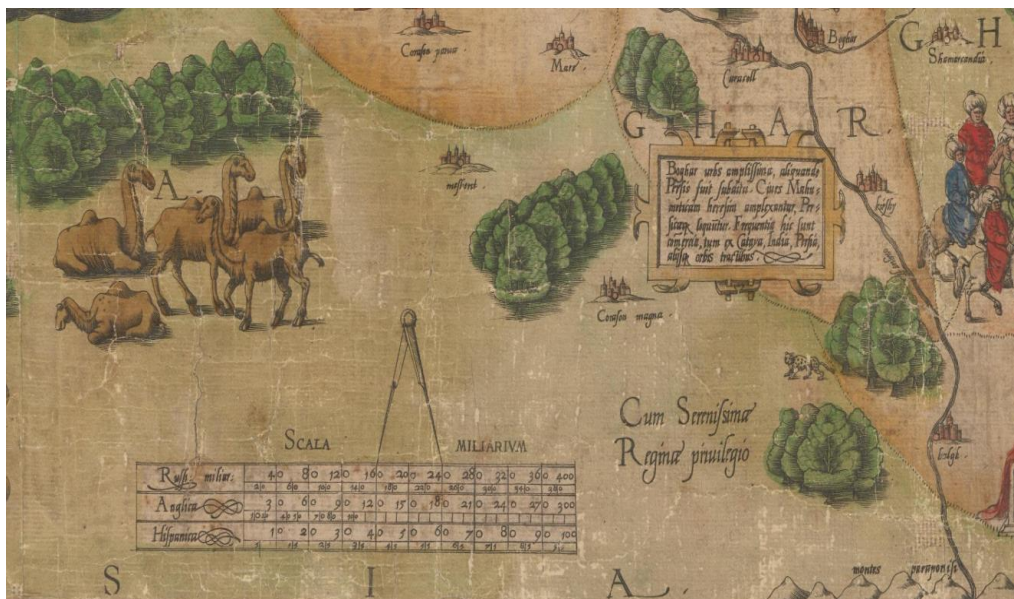 Corasan parua
Mare
Boghar
Shamarcandia
Curacoll
G H A R
G H
A
mesched
Boghar urbs amplissima, aliquando
Persis fuit subdita. Ciues Mahu=
meticam heresim amplexantur, Per=
sicæq loquuntur. Frequentia hic sunt
comercia, tum ex Cataya, India, Persia,
alijsq orbis tractibus.
kirshy
Corasan magna
Cum Serenissimæ
Reginæ priuilegio
balgh
SCALA MILIARIVM
Rush: miliar: 40 80 120 160 200 240 280 320 360 400
Anglica 30 60 90 120 150 180 210 240 270 300
Hispanica 10 20 30 40 50 60 70 80 90 100
S I A
montes paraponisi